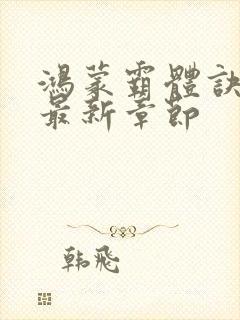 鴻蒙霸體訣
最新章節
韩飛